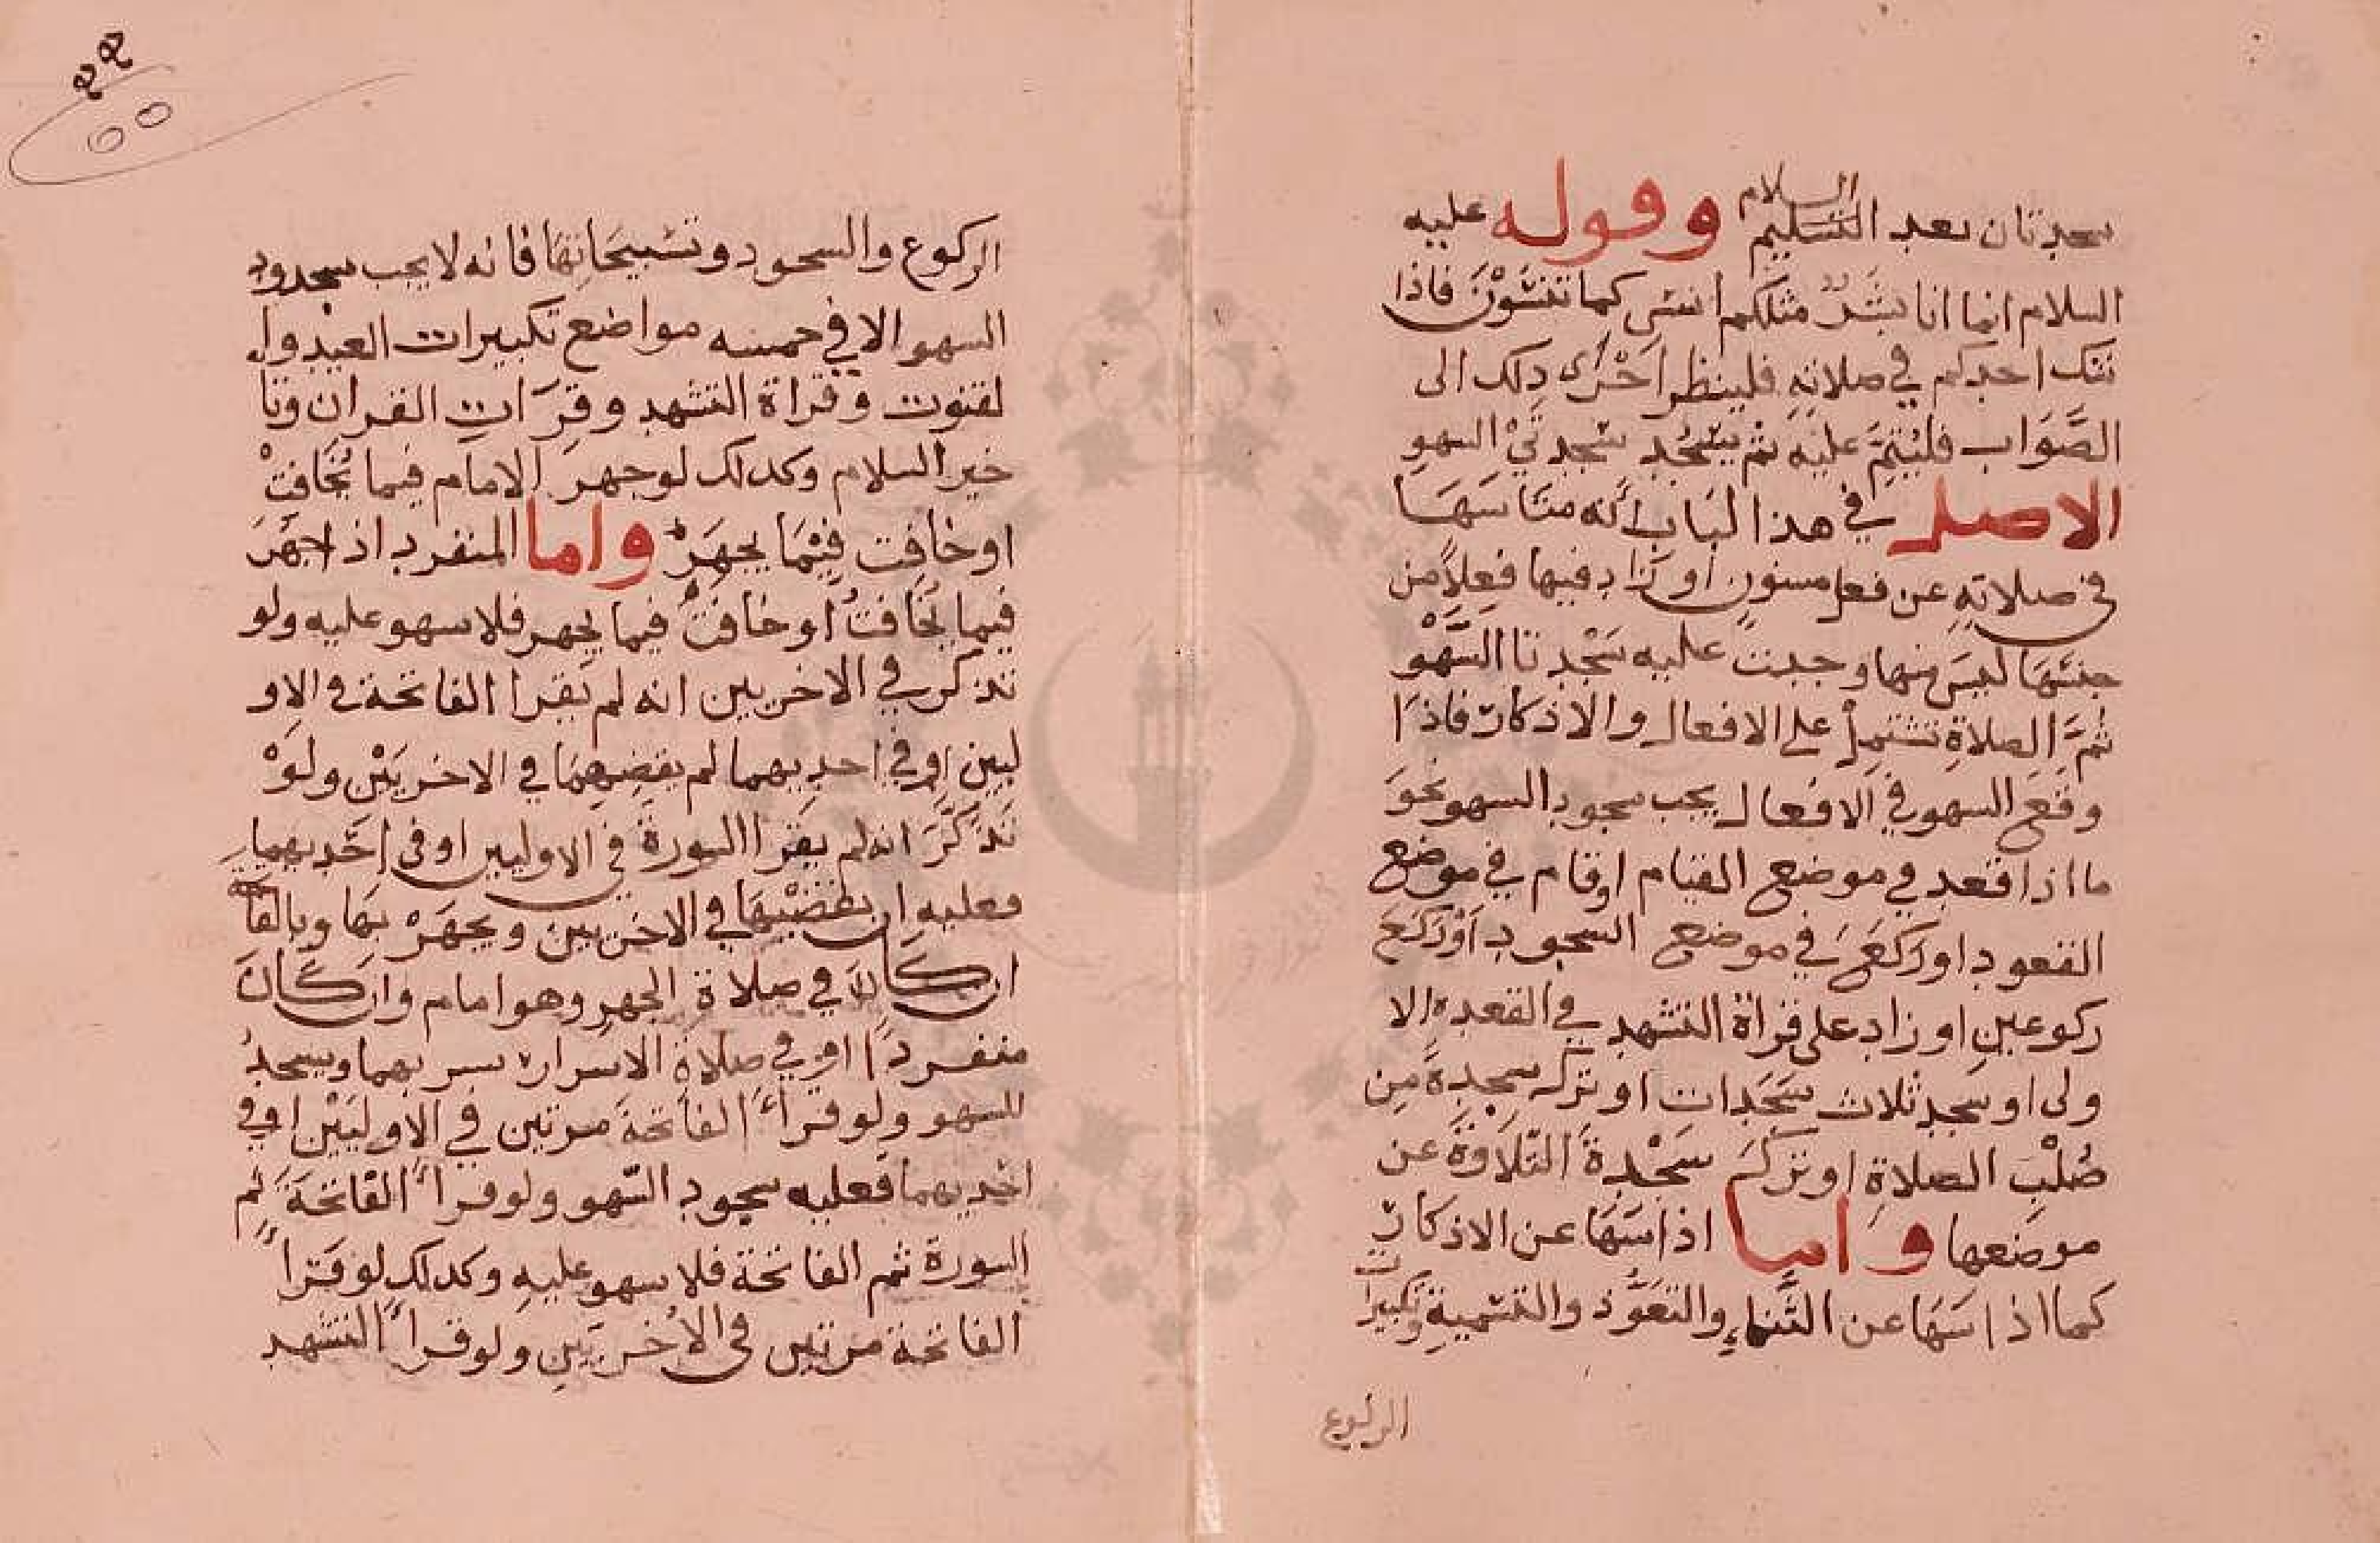 سجدتان بعد التسليم السلام وقوله عليه
السلام انما انا بَشَرٌ مثلكم انسَى كما تنسَوْنَ فاذا
شك احدكم في صلاتِهِ فلينظر اَحْرَى ذلك الى
الصَّوَاب فليُتِمَّ عليْه ثم يسْجُد سَجدتَيْ السهو
الاصل في هذا الباب اَنه متا سَهَا
في صلاتِهِ عن فعل مسنونٍ او زاد فيها فِعلاً من
جنسَهَا ليسَ منها وجبت عليه سَجْدتا السَّهْو
ثمَّ الصلاةِ تشتمِلْ على الافعال والاذكار فاذَا
وقَعَ السهو في الافعال يجب سجود السهو نحوَ
ما اذا قعد في موضع القيام او قام في موضع
القعود او رَكَعَ في موضع السجود اَوْ رَكَعَ
ركوعينِ او زاد على قراة التشهد في القعده الا
ولى او سَجد ثلاث سَجَدات او ترك سجدةً مِن
صُلْبِ الصلاةِ او تركَ سَجْدةَ التّلاَوَةَ عن
موضعها واما اذا سَهَا عن الاذكار
كما اذا سَهَا عن الثَّناءِ والتعَوُّذ والتسْميةِ وتكبيرات
الركوع
٢٢
٥٥
الركوع والسجود وتسْبيحَاتهَا فانه لا يجب سجدود
السهو الا في خمسه مواضع تكبيرات العيد وا
لقنوت وقراة التشهد وقِرَات القران وتا
خير السلام وكذلك لو جهرَ الامَام فيما يُخَافِتْ
او خافت فيْمَا يجهَرْ واما المنفرد اذ اجهَرَ
فيما يُخَافتُ او خافتُ فيما يجهر فلا سهو عليه ولو
تذكر في الاخريين انه لم يَقرا الفاتحة في الاو
ليين او في احديهما لم يقضِهِمَا في الاخريَيْن ولَوْ
تَذَكَّرَ انه لم يقرا السورةَ في الاوليين او في احَديهما
فعليه ان يقضيْهَا في الاخريين ويجهَرْ بهَا وبالفاتحة
ان كَانَ في صلاة الجهرِ وهو امام وان كَانَ
منفردًا او في صلاةِ الاسرار يسر بهما ويسجدُ
للسهو ولو قرأ الفاتحةَ مرتين في الاوليَيْن او في
احديهما فعليه سجود السّهو ولو قرأ الفاتحَةَ ثم
السورة ثم الفاتحة فلا سهو عليهِ وكذلك لو قَرأ
الفاتحة مرتين في الاُخريَينِ ولو قرأ التشهد